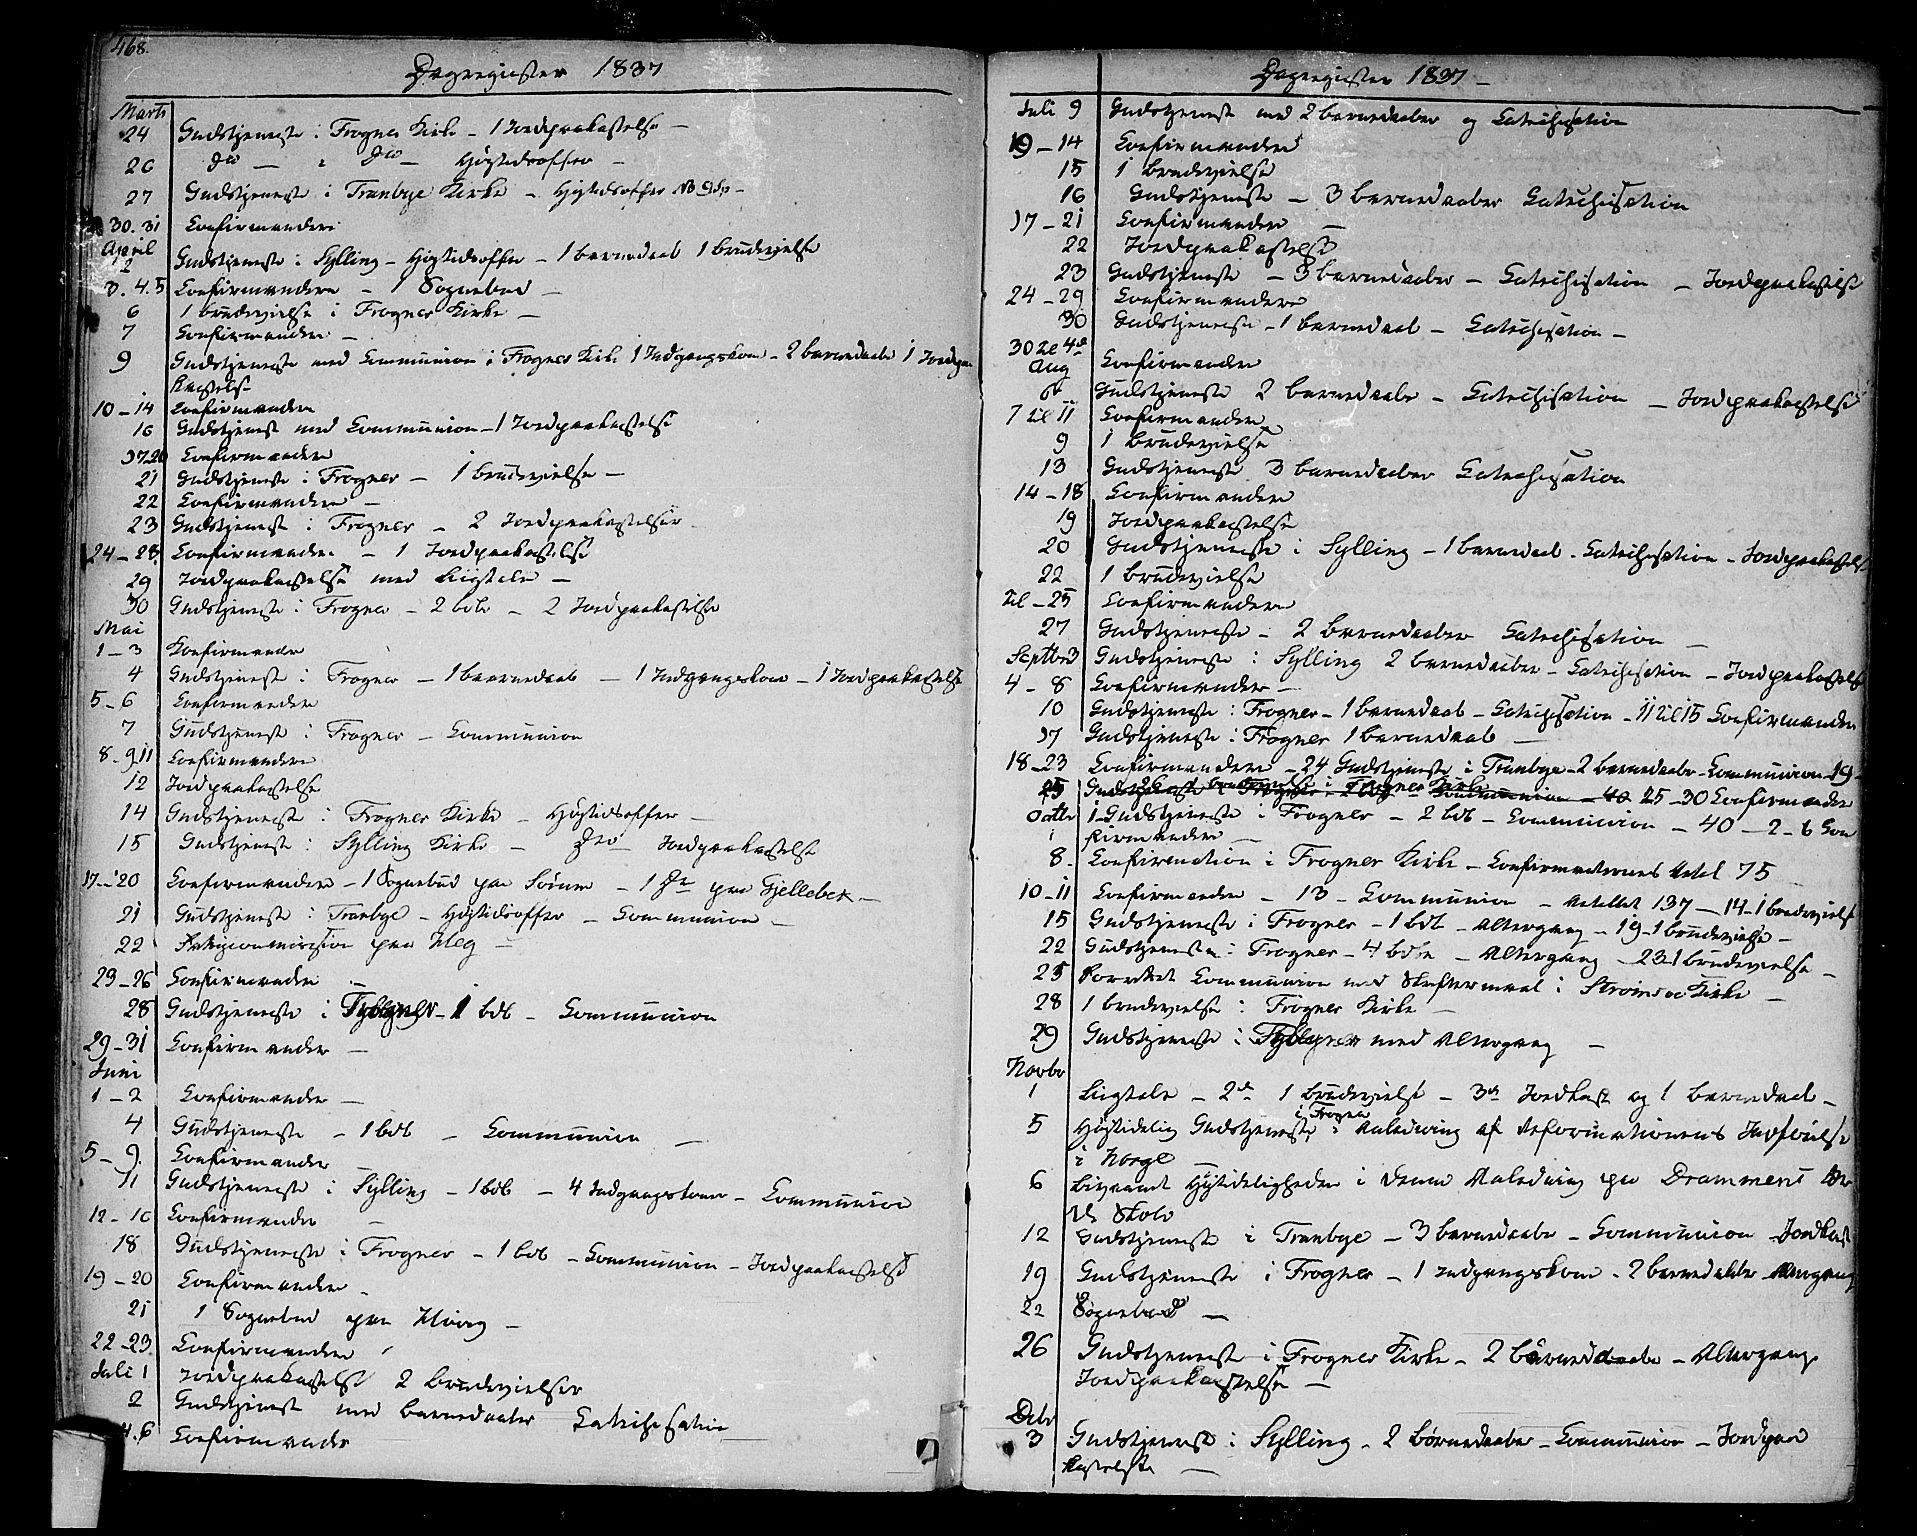 468.
Dagregister 1837
Marts
24 Gudstjeneste i Frogner Kirke – 1 Jordpaakastelse –
26 do — i do — Høytidsoffer –
27 Gudstjeneste i Tranbye Kirke – Høytidsoffer
30. 31 Confirmander
April
2 Gudstjeneste i Sylling – Høytidsoffer – 1 barnedaab 1 brudevielse
3. 4. 5 Confirmander – 1 Sognebud –
6 1 brudevielse i Frogner Kirke –
7 Confirmander –
9 Gudstjeneste med Communion i Frogner Kirke 1 Indgangskone – 2 barnedaabe 1 Jordpaa
kastelse
10 – 14 Confirmander
16 Gudstjeneste med Communion – 1 Jordpaakastelse
17 20 Confirmander
21 Gudstjeneste i Frogner – 1 brudevielse –
22 Confirmander –
23 Gudstjeneste i Frogner – 2 Jordpaakastelser
24 – 28. Confirmander – 1 Jordpaakastelse
29 Jordpaakastelse med Liigtale –
30 Gudstjeneste i Frogner – 2 bdb – 2 Jordpaakastelse
Mai
1 – 3 Confirmander
4 Gudstjeneste i Frogner – 1 barnedaab – 1 Indgangskone – 1 Jordpaakastelse
5 – 6 Confirmander
7 Gudstjeneste i Frogner – Communion
8 – 9 11 Confirmander
12 Jordpaakastelse
14 Gudstjeneste i Frogner Kirke – Høytidsoffer –
15 Gudstjeneste i Sylling Kirke – do Jordpaakastelse
17 – 20 Confirmander – 1 Sognebud paa Sørum – 1 do paa Gjellebek –
21 Gudstjeneste i Tranbye – Høytidsoffer – Communion –
22 paa Heg –
23 – 26 Confirmander
28 Gudstjeneste i 1 bdb – Communion
29 – 31 Confirmander –
Juni
1 – 2 Confirmander –
4 Gudstjeneste – 1 bdb – Communion –
5 – 9. Confirmander
11 Gudstjeneste i Sylling – 1 bdb – 4 Indgangskoner – Communion
12 – 16 Confirmander –
18 Gudstjeneste i Frogner – 1 bdb – Communion – Jordpaakastelse
19 – 20 Confirmander –
21 1 Sognebud paa
22 – 23 Confirmander
Juli 1 Jordpaakastelse 2 brudevielser
2 Gudstjeneste med barnedaaber Catechisation
4. 6 Confirmander
Dagregister 1837 –
Juli 9 Gudstjeneste med 2 barnedaaber og Catechisation
– 14 Confirmander
15 1 brudevielse
16 Gudstjeneste – 3 barnedaaber Catechisation
17 – 21 Confirmander –
22 Jordpaakastelse
23 Gudstjeneste – 3 barnedaaber – Catechisation – Jordpaakastelse
24 – 29 Confirmander
30 Gudstjeneste – 1 barnedaab – Catechisation –
30 til 4de
Aug Confirmander
6 Gudstjeneste 2 barnedaabe – Catechisation – Jordpaakastelse
7 til 11 Confirmander
9 1 brudevielse
13 Gudstjeneste 3 barnedaaber Catechisation
14 – 18 Confirmander
19 Jordpaakastelse
20 Gudstjeneste i Sylling – 1 barnedaab – Catechisation – Jordpaakastelse
22 1 brudevielse
til – 25 Confirmander
27 Gudstjeneste – 2 barnedaaber Catechisation –
Septbr 3 Gudstjeneste i Sylling 2 barnedaaber – Catechisation – Jordpaakastelse
4 – 8 Confirmander –
10 Gudstjeneste i Frogner – 1 barnedaab – Catechisation – 11 til 15 Confirmander
17 Gudstjeneste i Frogner 1 barnedaab –
18 – 23 Confirmander – 24 Gudstjeneste i Tranbye – 2 barnedaabe – Communion – 19 –
25 – 30 Confirmander
Octbr 1 Gudstjeneste i Frogner – 2 bdb – Communion – 40 – 2 – 6 Con
firmander –
8. Confirmation i Frogner Kirke – Confirmanternes Antal 75
10 – 11 Confirmander – 13 – Communion – Antallet 137 – 14 – 1 brudevielse
15 Gudstjeneste i Frogner – 1 bdb – Altergang – 19 – 1 brudevielse –
22 Gudstjeneste i Frogner – 4 bdb – Altergang – 23 1 brudevielse –
25 Forrettet Communion med Skriftemaal i Strømsøe Kirke –
28 1 brudevielse i Frogner Kirke –
29 Gudstjeneste i med Altergang –
Novbr
1 Liigtale – 2de 1 brudevielse – 3de Jordkast og 1 barnedaab –
5 Høytidelig Gudstjeneste i Frogner i Anledning af Reformationens Indførelse
i Norge
6 Bivaanet Høytideligheden i denne Anledning paa Drammens
Skole
12 Gudstjeneste i Tranbye – 3 barnedaabe – Communion – Jordkast
19 Gudstjeneste i Frogner – 1 Indgangskone – 2 barnedaabe – Altergang
22 Sognebud –
26 Gudstjeneste i Frogner Kirke – 2 barnedaabe – Altergang
Jordpaakastelse –
Debr
3 Gudstjeneste i Sylling – 2 Børnedaaber – Communion – Jordpaa
kastelse –